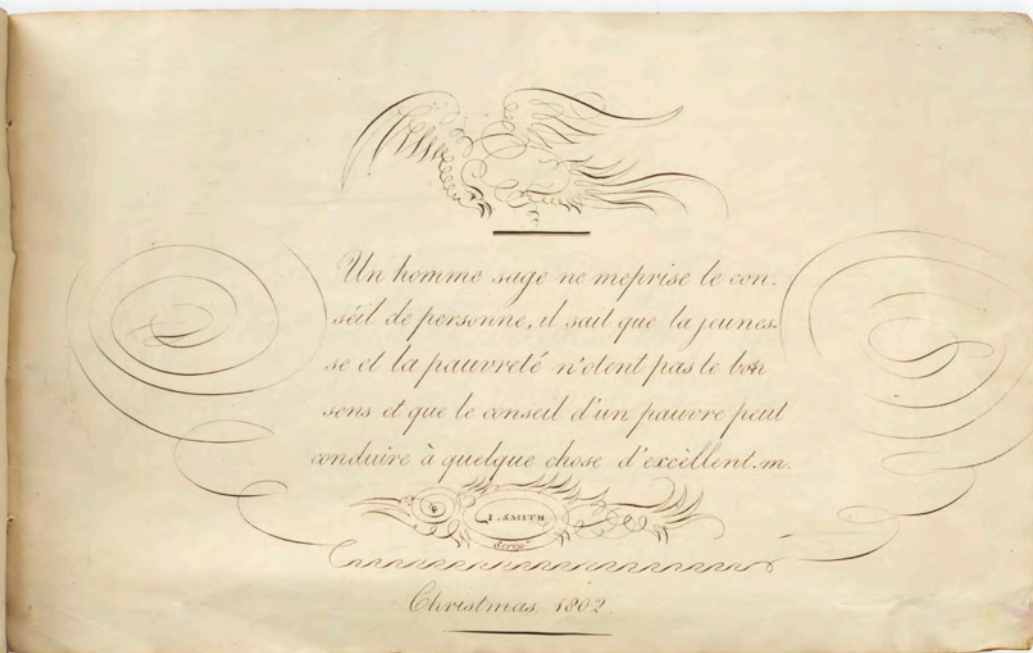 Un homme sage ne meprise le con-
séil de personne, il sait que la jeunes-
se et la pauvreté n'otent pas le bon
sens et que le conseil d'un pauvre peut
conduire à quelque chose d'excèllent.m.
I. SMITH
Scrip.t
Christmas. 1802.